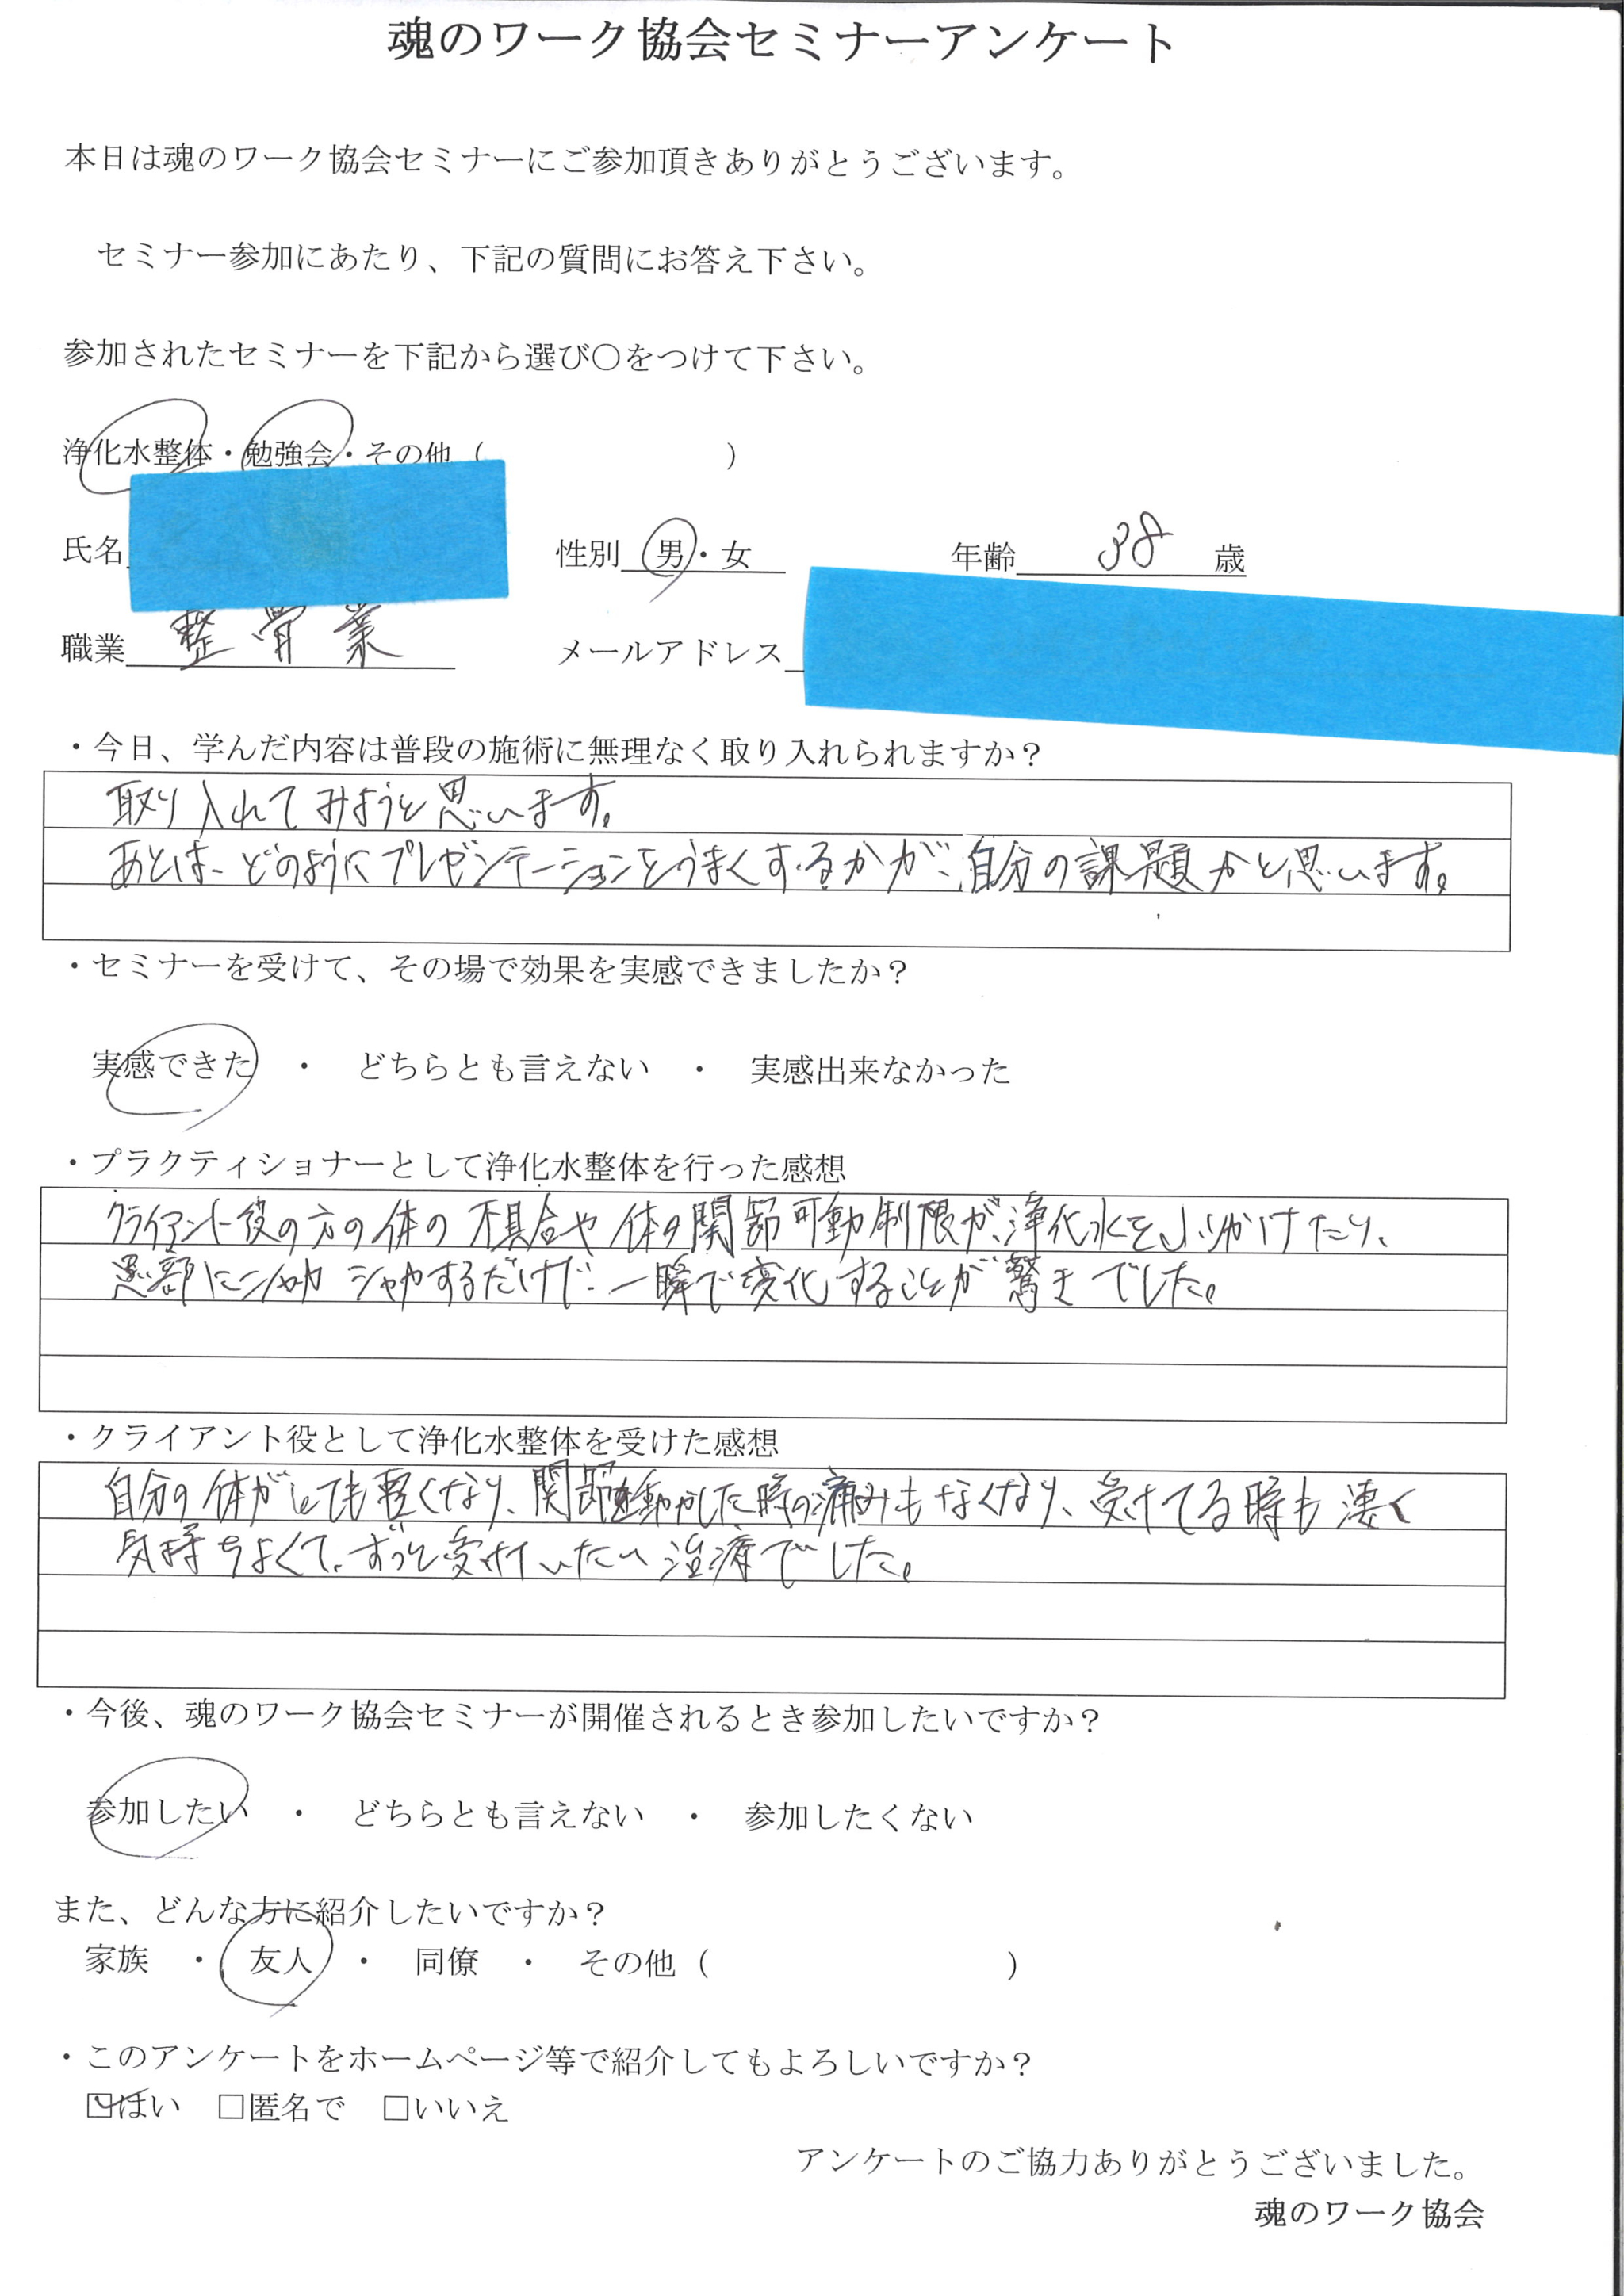 魂のワーク協会セミナーアンケート
本日は魂のワーク協会セミナーにご参加頂きありがとうございます。
セミナー参加にあたり、下記の質問にお答え下さい。
参加されたセミナーを下記から選び〇をつけて下さい。
浄化水整体・勉強会・その他（　　　）
氏名　性別　男・女　年齢　38　歳
職業　整骨業　メールアドレス
・今日、学んだ内容は普段の施術に無理なく取り入れられますか？
取り入れてみようと思います。
あとは、どのようにプレゼンテーションをうまくするかが、自分の課題かと思います。
・セミナーを受けて、その場で効果を実感できましたか？
実感できた　・　どちらとも言えない　・　実感出来なかった
・プラクティショナーとして浄化水整体を行った感想
クライアント役の方の体の不具合や体の関節可動制限が、浄化水をふりかけたり、
患部にシャカシャカするだけで、一瞬で変化することが驚きでした。
・クライアント役として浄化水整体を受けた感想
自分の体がとても軽くなり、関節を動かした時の痛みもなくなり、受けてる時も凄く
気持ちよくて、ずっと受けていたい治療でした。
・今後、魂のワーク協会セミナーが開催されるとき参加したいですか？
参加したい　・　どちらとも言えない　・　参加したくない
また、どんな方に紹介したいですか？
家族　・　友人　・　同僚　・　その他（　　　）
・このアンケートをホームページ等で紹介してもよろしいですか？
☑はい　□匿名で　□いいえ
アンケートのご協力ありがとうございました。
魂のワーク協会